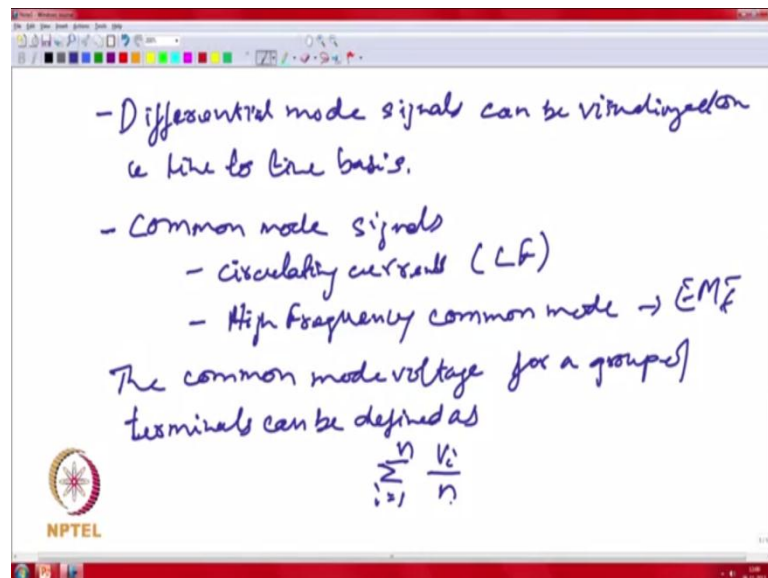 - Differential mode signals can be visualized on
a line to line basis.
- Common mode signals
- circulating currents (LF)
- High Frequency common mode → EMI
The common mode voltage for a group of
terminals can be defined as
n
∑ Vi/n
i=1
NPTEL